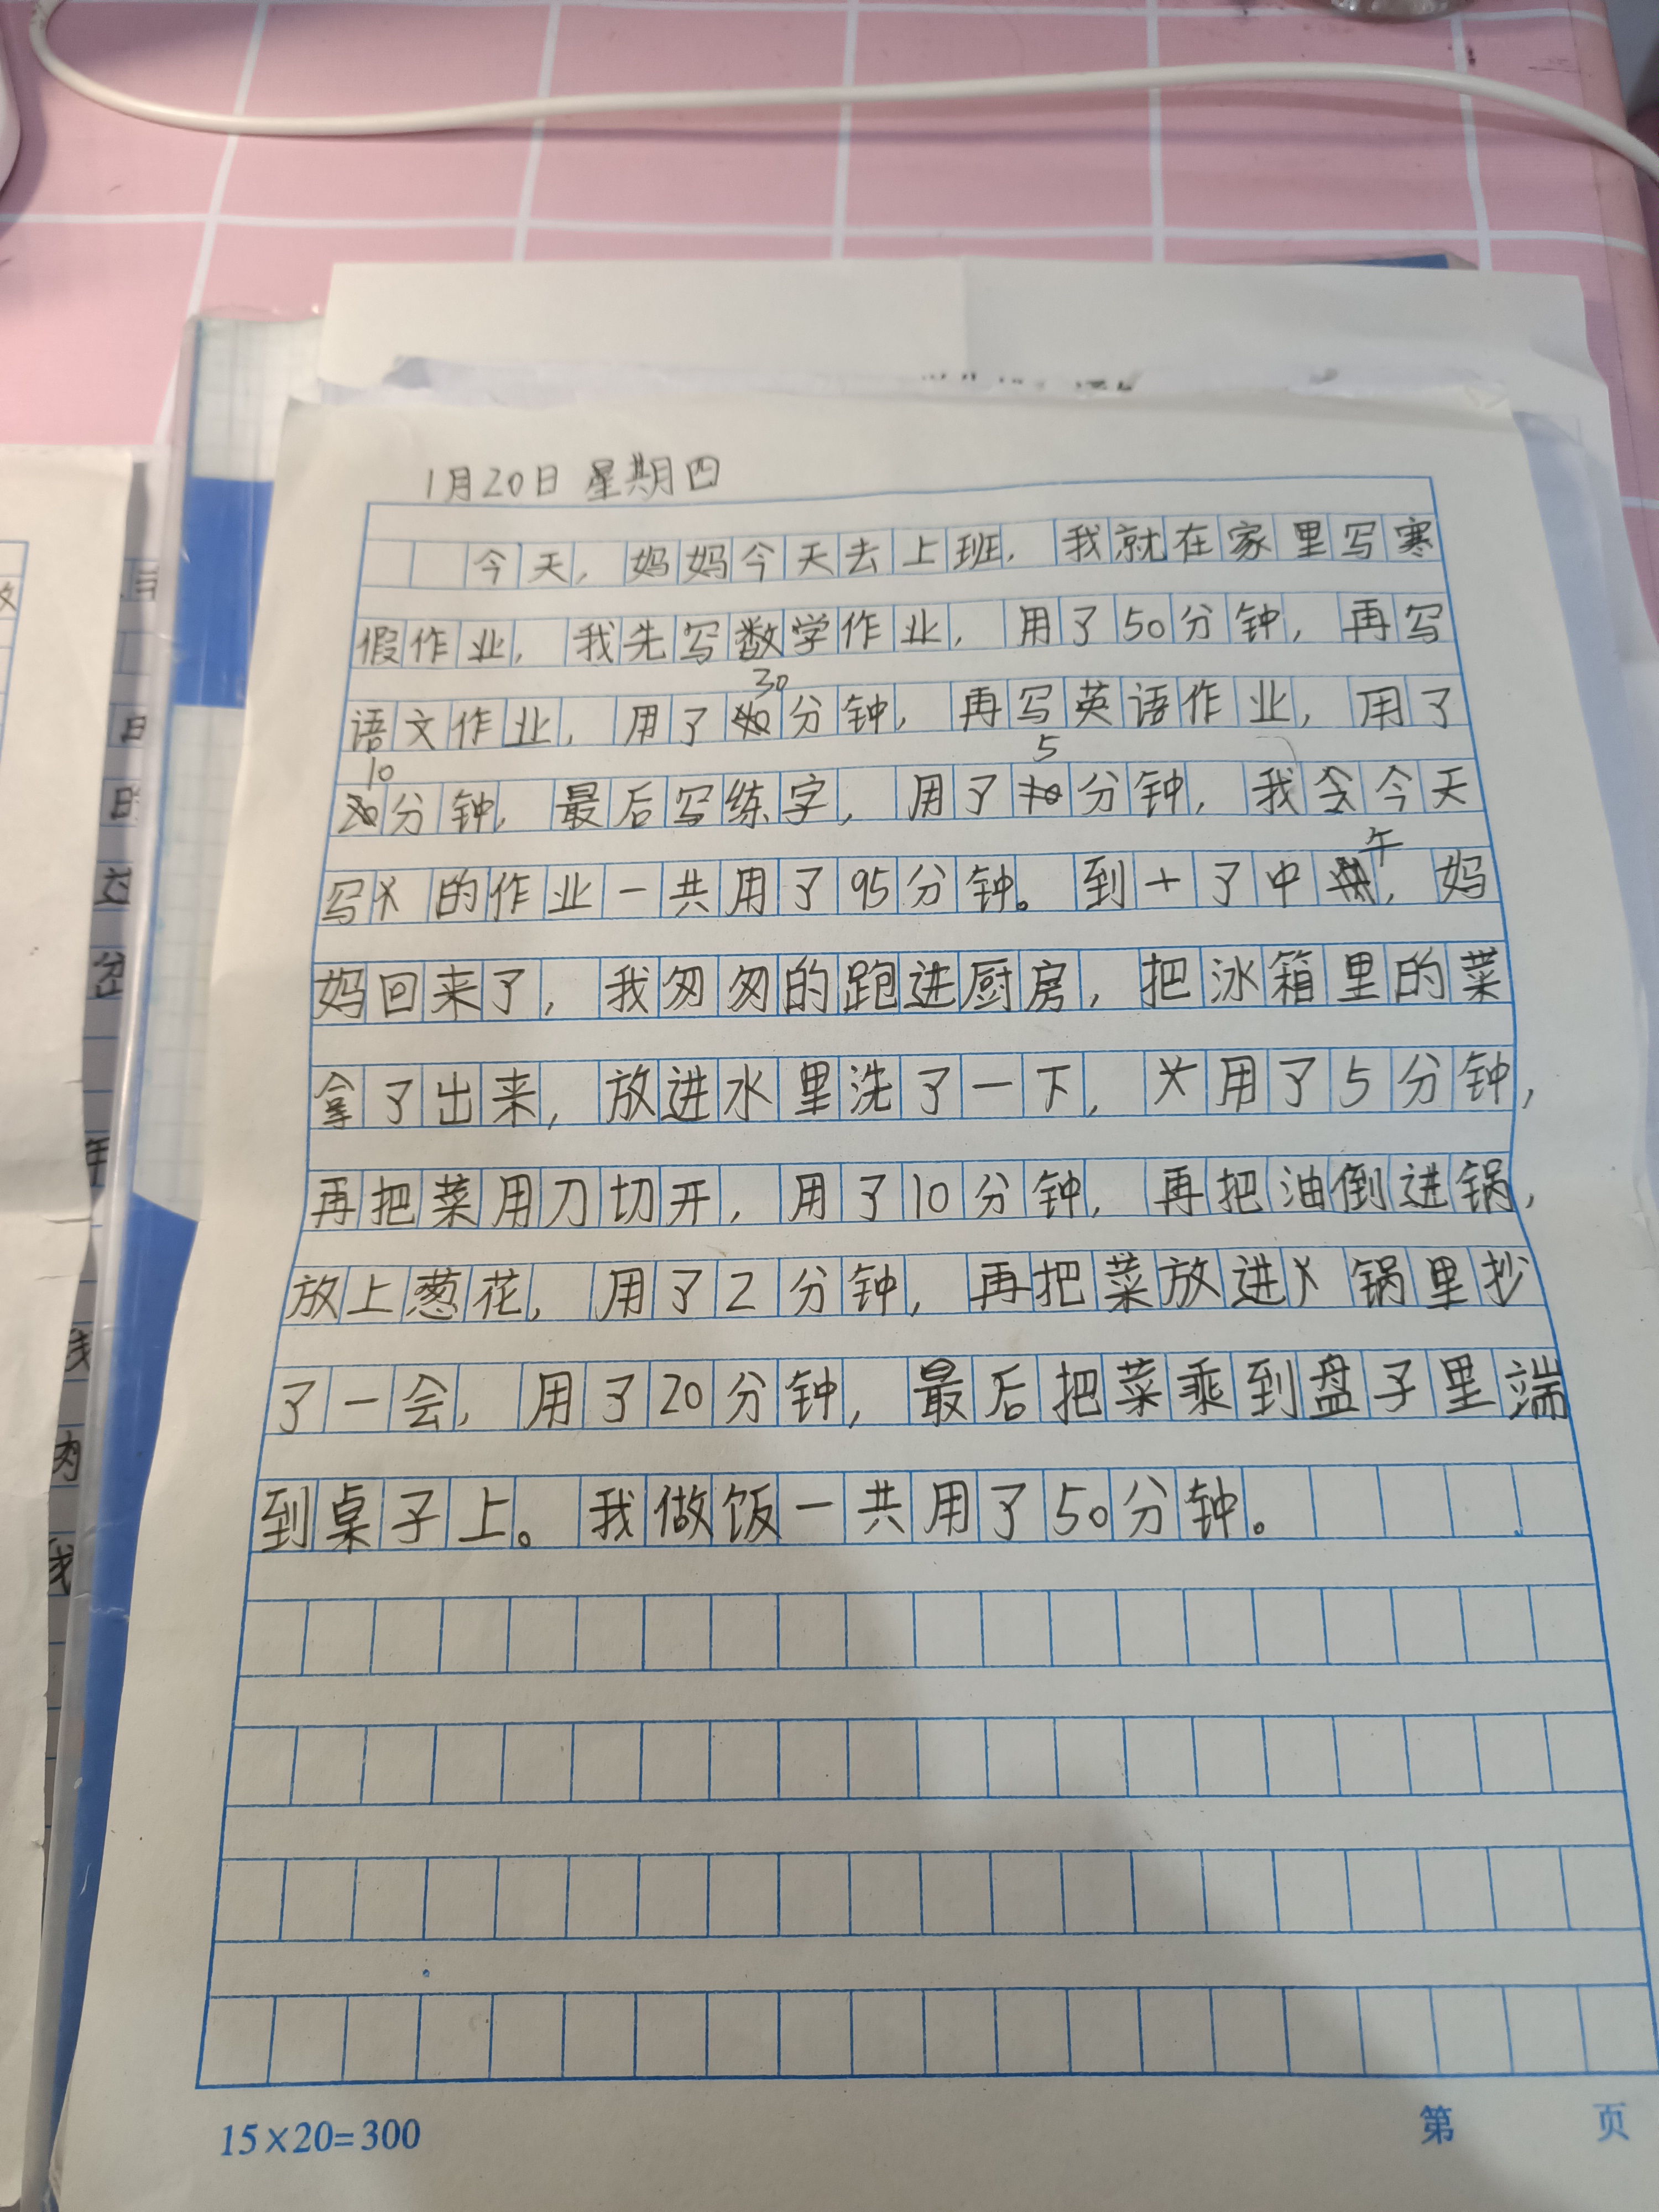 1月20日 星期四
今天，妈妈今天去上班，我就在家里写寒
假作业，我先写数学作业，用了50分钟，再写
语文作业，用了30分钟，再写英语作业，用了
10分钟，最后写练字，用了5分钟，我今天
写的作业一共用了95分钟。到了中午，妈
妈回来了，我匆匆的跑进厨房，把冰箱里的菜
拿了出来，放进水里洗了一下，用了5分钟，
再把菜用刀切开，用了10分钟，再把油倒进锅，
放上葱花，用了2分钟，再把菜放进锅里抄
了一会，用了20分钟，最后把菜乘到盘子里端
到桌子上。我做饭一共用了50分钟。
15×20=300
第 页